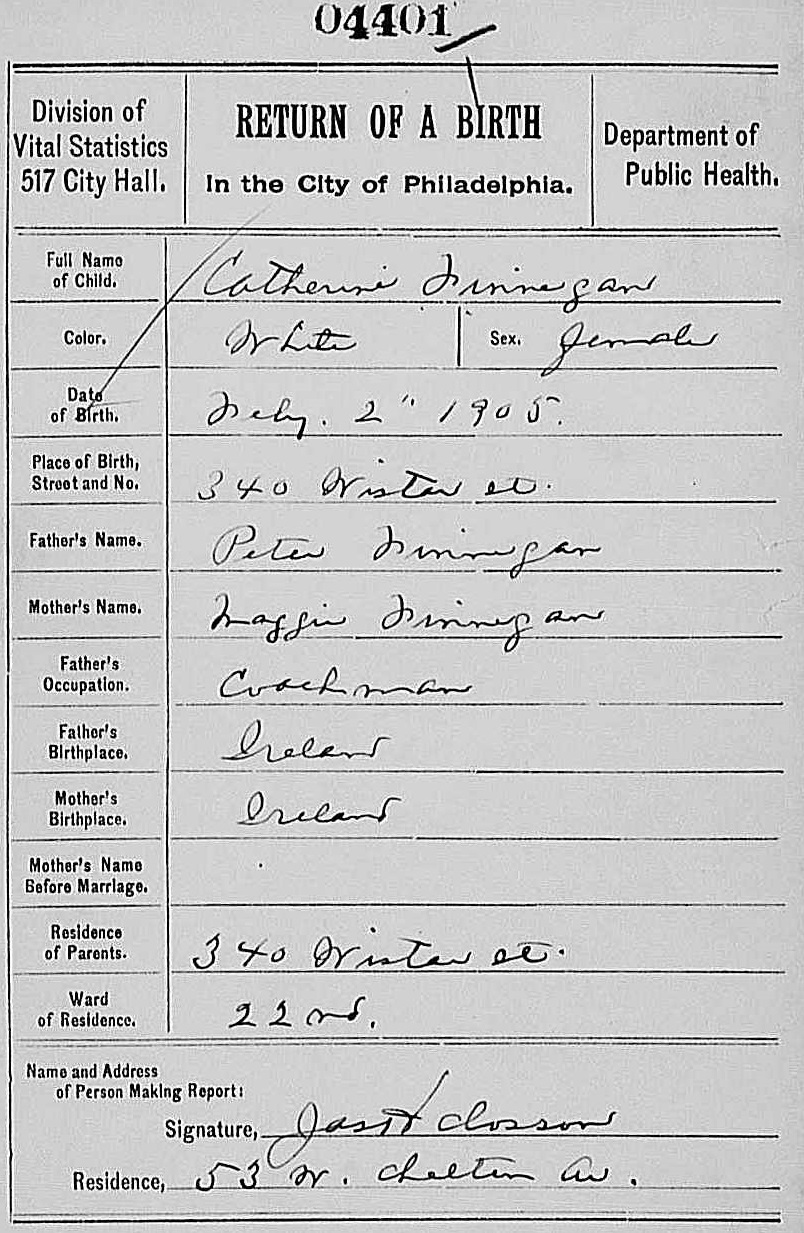 04401
Division of
Vital Statistics
517 City Hall.
RETURN OF A BIRTH
In the City of Philadelphia.
Department of
Public Health.
Full Name
of Child.
Catherine Finnegan
Color.
White
Sex.
female
Date
of Birth.
Feby. 2" 1905.
Place of Birth,
Street and No.
340 Wister st.
Father's Name.
Peter Finnegan
Mother's Name.
Maggie Finnegan
Father's
Occupation.
Coachman
Father's
Birthplace.
Ireland
Mother's
Birthplace.
Ireland
Mother's Name
Before Marriage.
Residence
of Parents.
340 Wister st.
Ward
of Residence.
22nd.
Name and Address
of Person Making Report:
Signature, Jas H Closson
Residence, 53 W. Chelten Av.